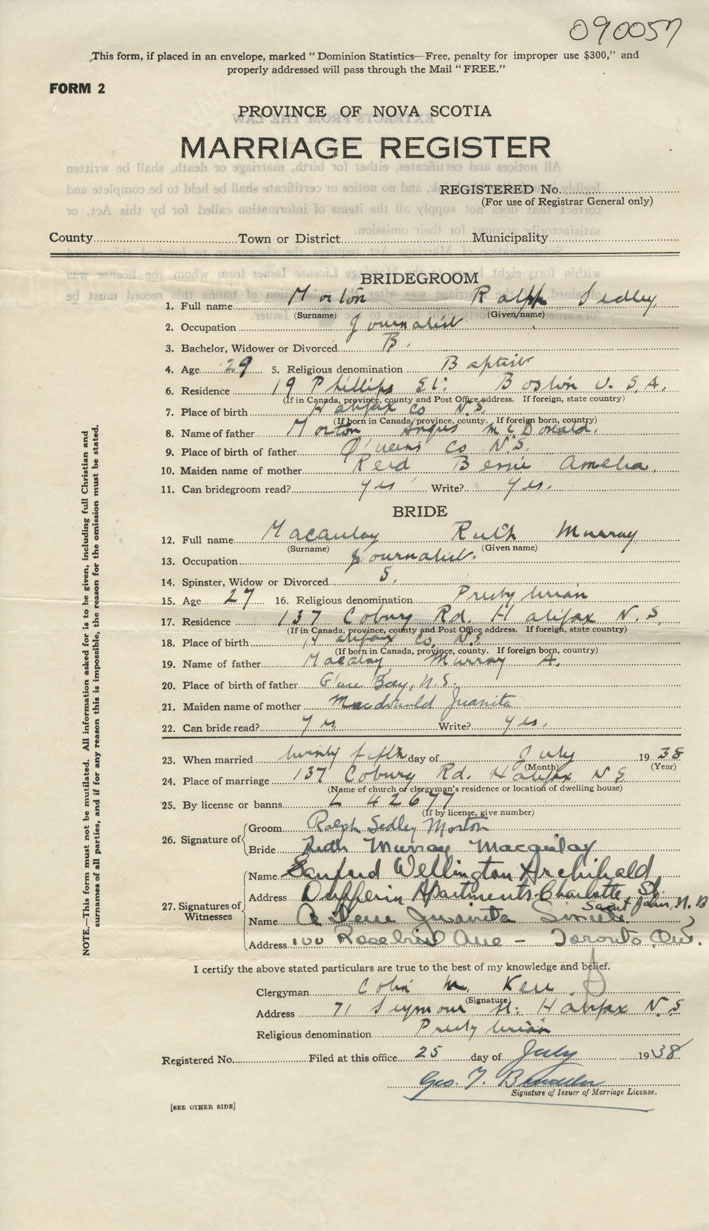 090057
This form, if placed in an envelope, marked "Dominion Statistics—Free, penalty for improper use $300," and
properly addressed will pass through the Mail "FREE."
FORM 2
PROVINCE OF NOVA SCOTIA
MARRIAGE REGISTER
REGISTERED No.
(For use of Registrar General only)
County Town or District Municipality
BRIDEGROOM
1. Full name Morton Ralph Sedley
(Surname) (Given name)
2. Occupation Journalist
3. Bachelor, Widower or Divorced B.
4. Age 29 5. Religious denomination Baptist
6. Residence 19 Phillips St. Boston U.S.A.
(If in Canada, province, county and Post Office address. If foreign, state country)
7. Place of birth Halifax Co N.S.
(If born in Canada, province, county. If foreign born, country)
8. Name of father Morton Angus McDonald.
9. Place of birth of father Queens Co N.S.
10. Maiden name of mother Reid Bessie Amelia
11. Can bridegroom read? yes Write? yes.
BRIDE
12. Full name Macaulay Ruth Murray
(Surname) (Given name)
13. Occupation Journalist.
14. Spinster, Widow or Divorced S.
15. Age 27 16. Religious denomination Presbyterian
17. Residence 137 Coburg Rd. Halifax N.S.
(If in Canada, province, county and Post Office address. If foreign, state country)
18. Place of birth Halifax Co, N.S
(If born in Canada, province, county. If foreign born, country)
19. Name of father Macaulay Murray A.
20. Place of birth of father Glace Bay, N.S.
21. Maiden name of mother Macdonald Juanita
22. Can bride read? yes Write? yes.
23. When married twenty fifth day of July 1938
(Month) (Year)
24. Place of marriage 137 Coburg Rd. Halifax N S
(Name of church or clergyman's residence or location of dwelling house)
25. By license or banns L 42677
(If by license, give number)
26. Signature of Groom Ralph Sedley Morton
Bride Ruth Murray Macaulay
27. Signatures of Witnesses Name Sanford Wellington Archibald
Address Dufferin Apartments, Charlotte St.
Saint John, N.B
Name Juanita Smith
Address 100 Ave — Toronto Ont.
I certify the above stated particulars are true to the best of my knowledge and belief.
Clergyman Colin M. Kerr
(Signature)
Address 71 Seymour St. Halifax N S
Religious denomination Presbyterian
Registered No. Filed at this office 25 day of July 1938
Geo. T.
Signature of Issuer of Marriage License.
[SEE OTHER SIDE]
NOTE.—This form must not be mutilated. All information asked for is to be given, including full Christian and
surnames of all parties, and if for any reason this is impossible, the reason for the omission must be stated.